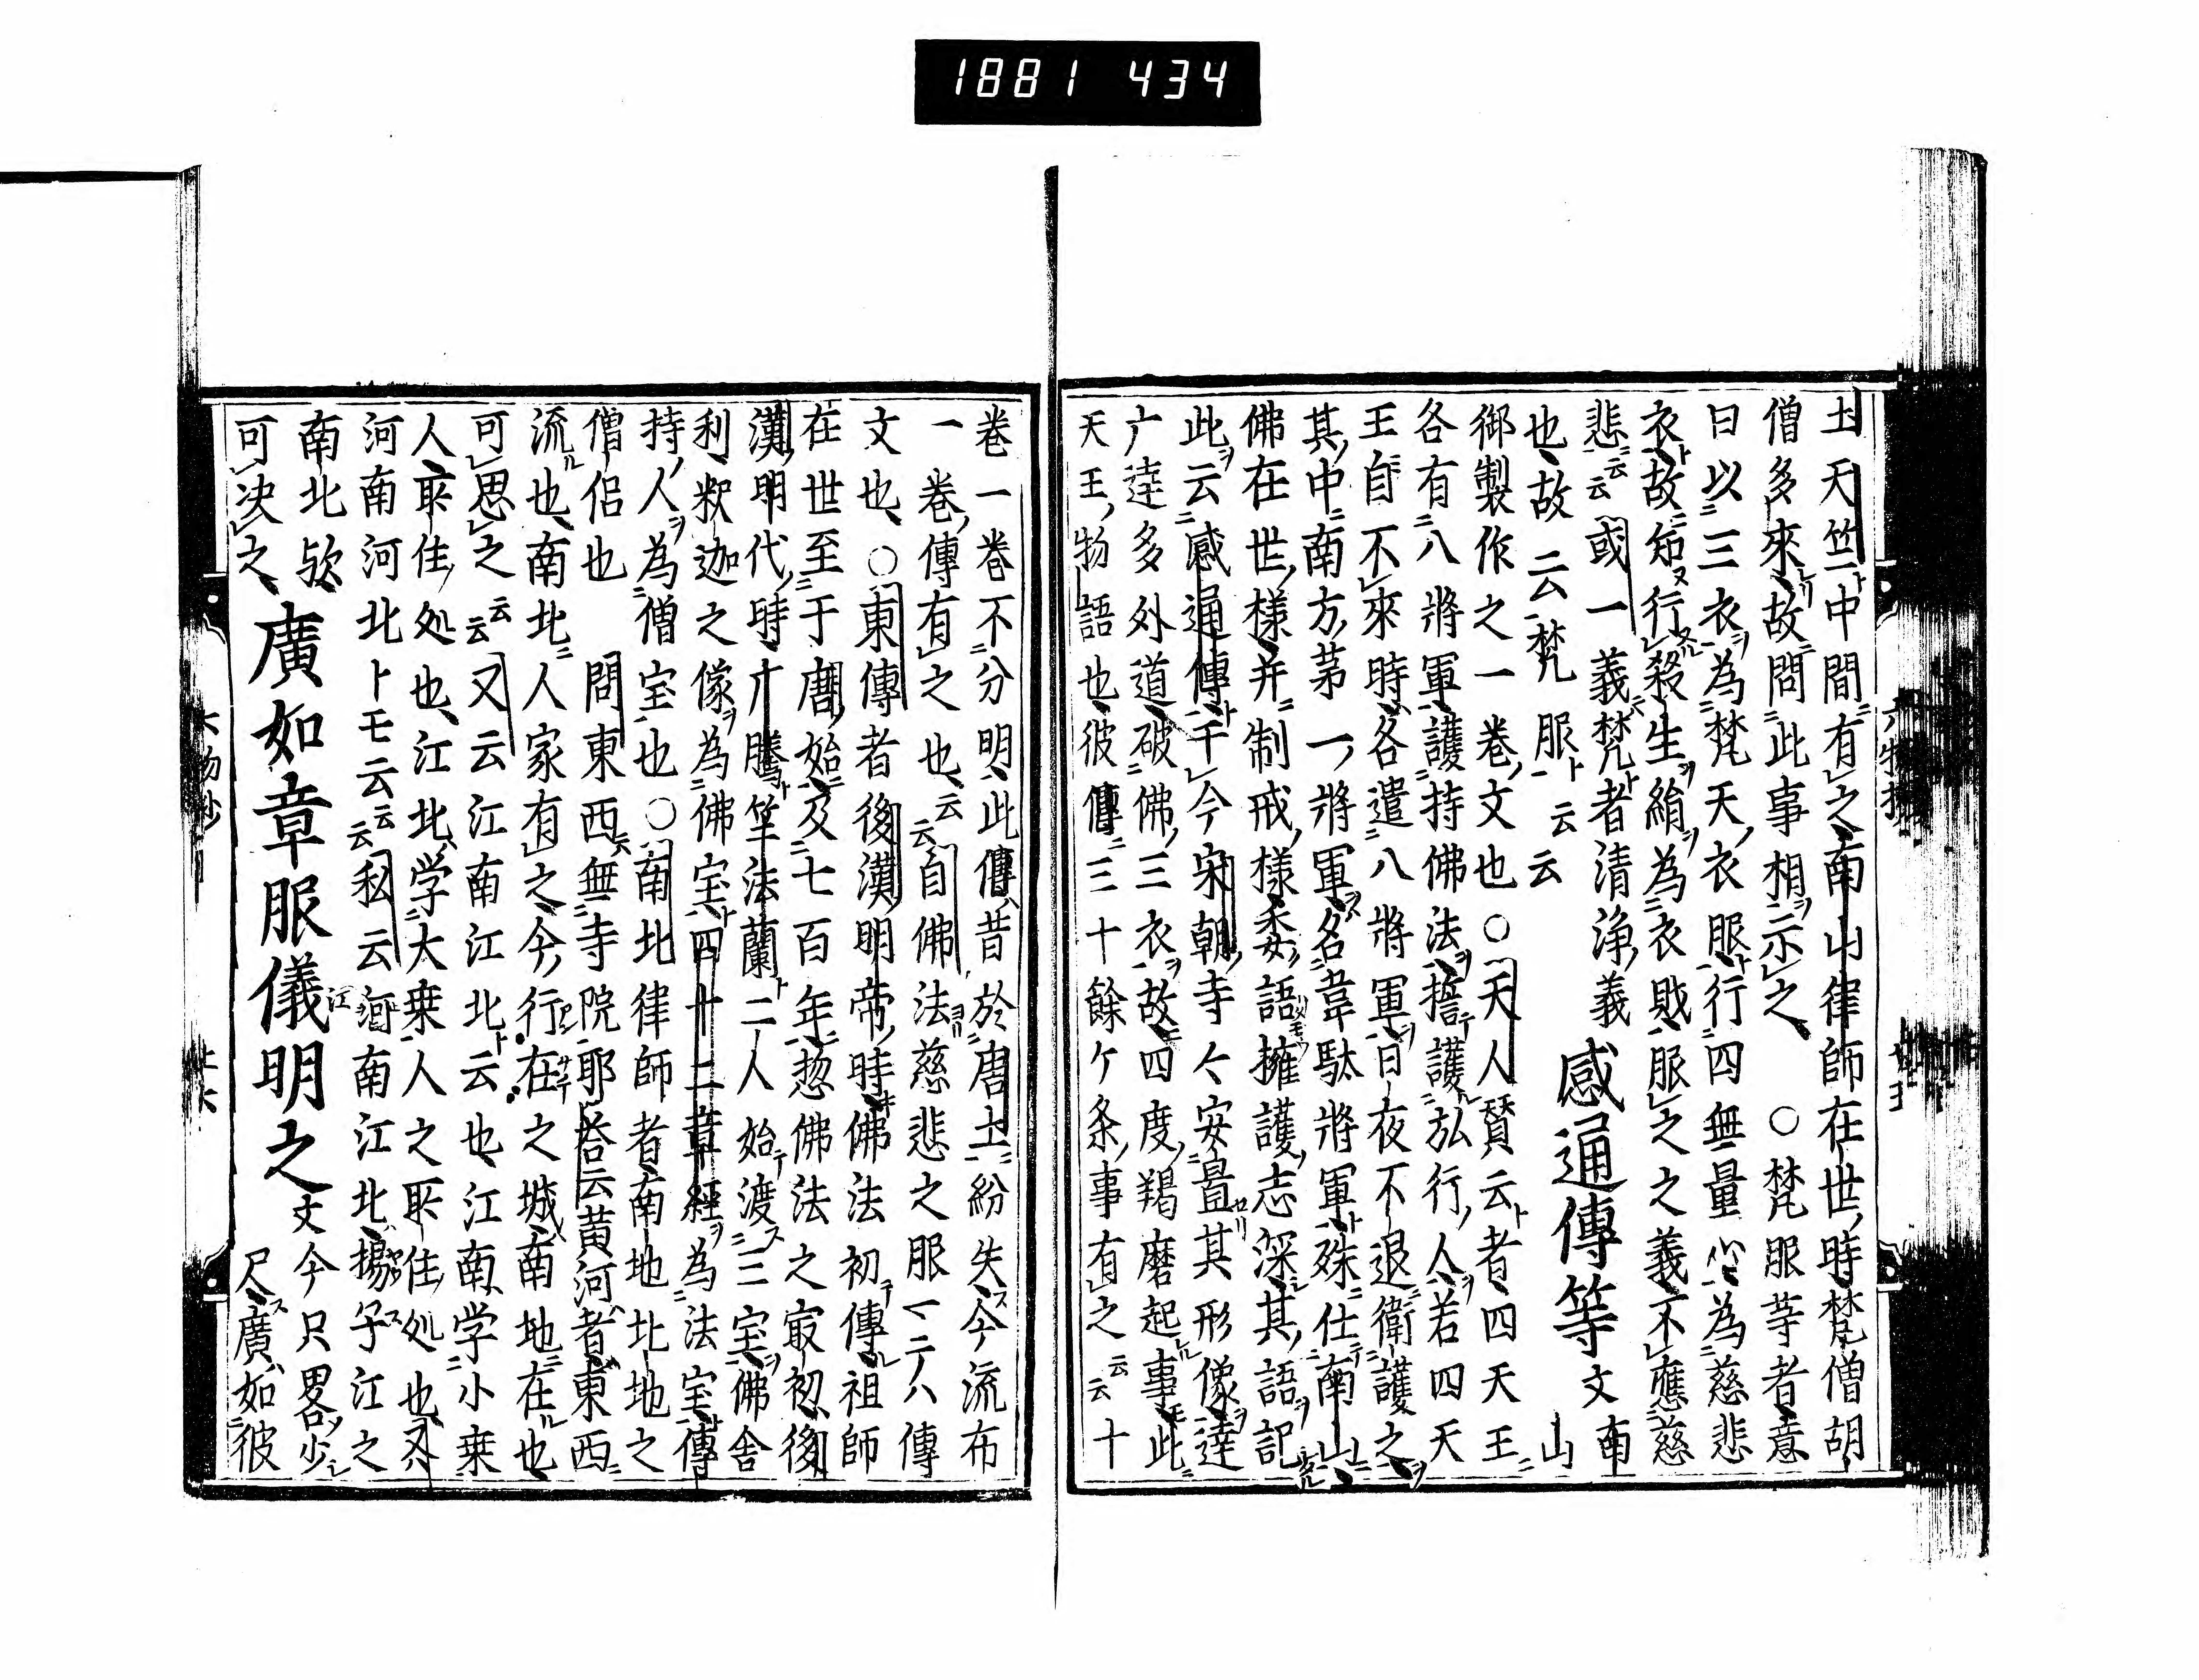 1881 434
土天竺中間有之南山律師在世時梵僧胡
僧多來故問此事相示之○梵服等者意
曰以三衣為梵天衣服行四無量心為慈悲
衣故知行殺生絹為衣敗服之之義不應慈
悲云云或一義梵者清浄義感通傳等文南山
也故云梵服云云
御製作之一巻文也○天人賛云者四天王
各有八將軍護持佛法誓護弘行人若四天
王自不來時各遣八將軍日夜不退衛護之
其中南方第一將軍名韋駄將軍殊仕南山
佛在世樣并制戒樣委語擁護志深其語記
此云感通傳千今宋朝寺々安置其形像達
广達多外道破佛三衣故四度羯磨起事此
天王物語也彼傳三十餘ケ条事有之云云十
巻一巻不分明此傳昔於唐土紛失今流布
一巻傳有之也云云自佛法慈悲之服ト云ハ傳
文也○東傳者後漢明帝時佛法初傳祖師
在世至于唐始及七百年惣佛法之㝡初後
漢明代時广騰竺法蘭二人始渡三宝佛舎
利釈迦之像為佛宝四十二章經為法宝傳
持人為僧宝也○南北律師者南地北地之
僧侶也 問東西無寺院耶荅云黄河者東西
流也南北人家有之今行在之城南地在也
可思之云云又云江南江北云也江南学小乗
人取住処也江北学大乗人之取住処也又
河南河北トモ云云私云河南江北揚子江之
南北欤廣如章服儀明之文今只畧少
可决之尺廣如彼